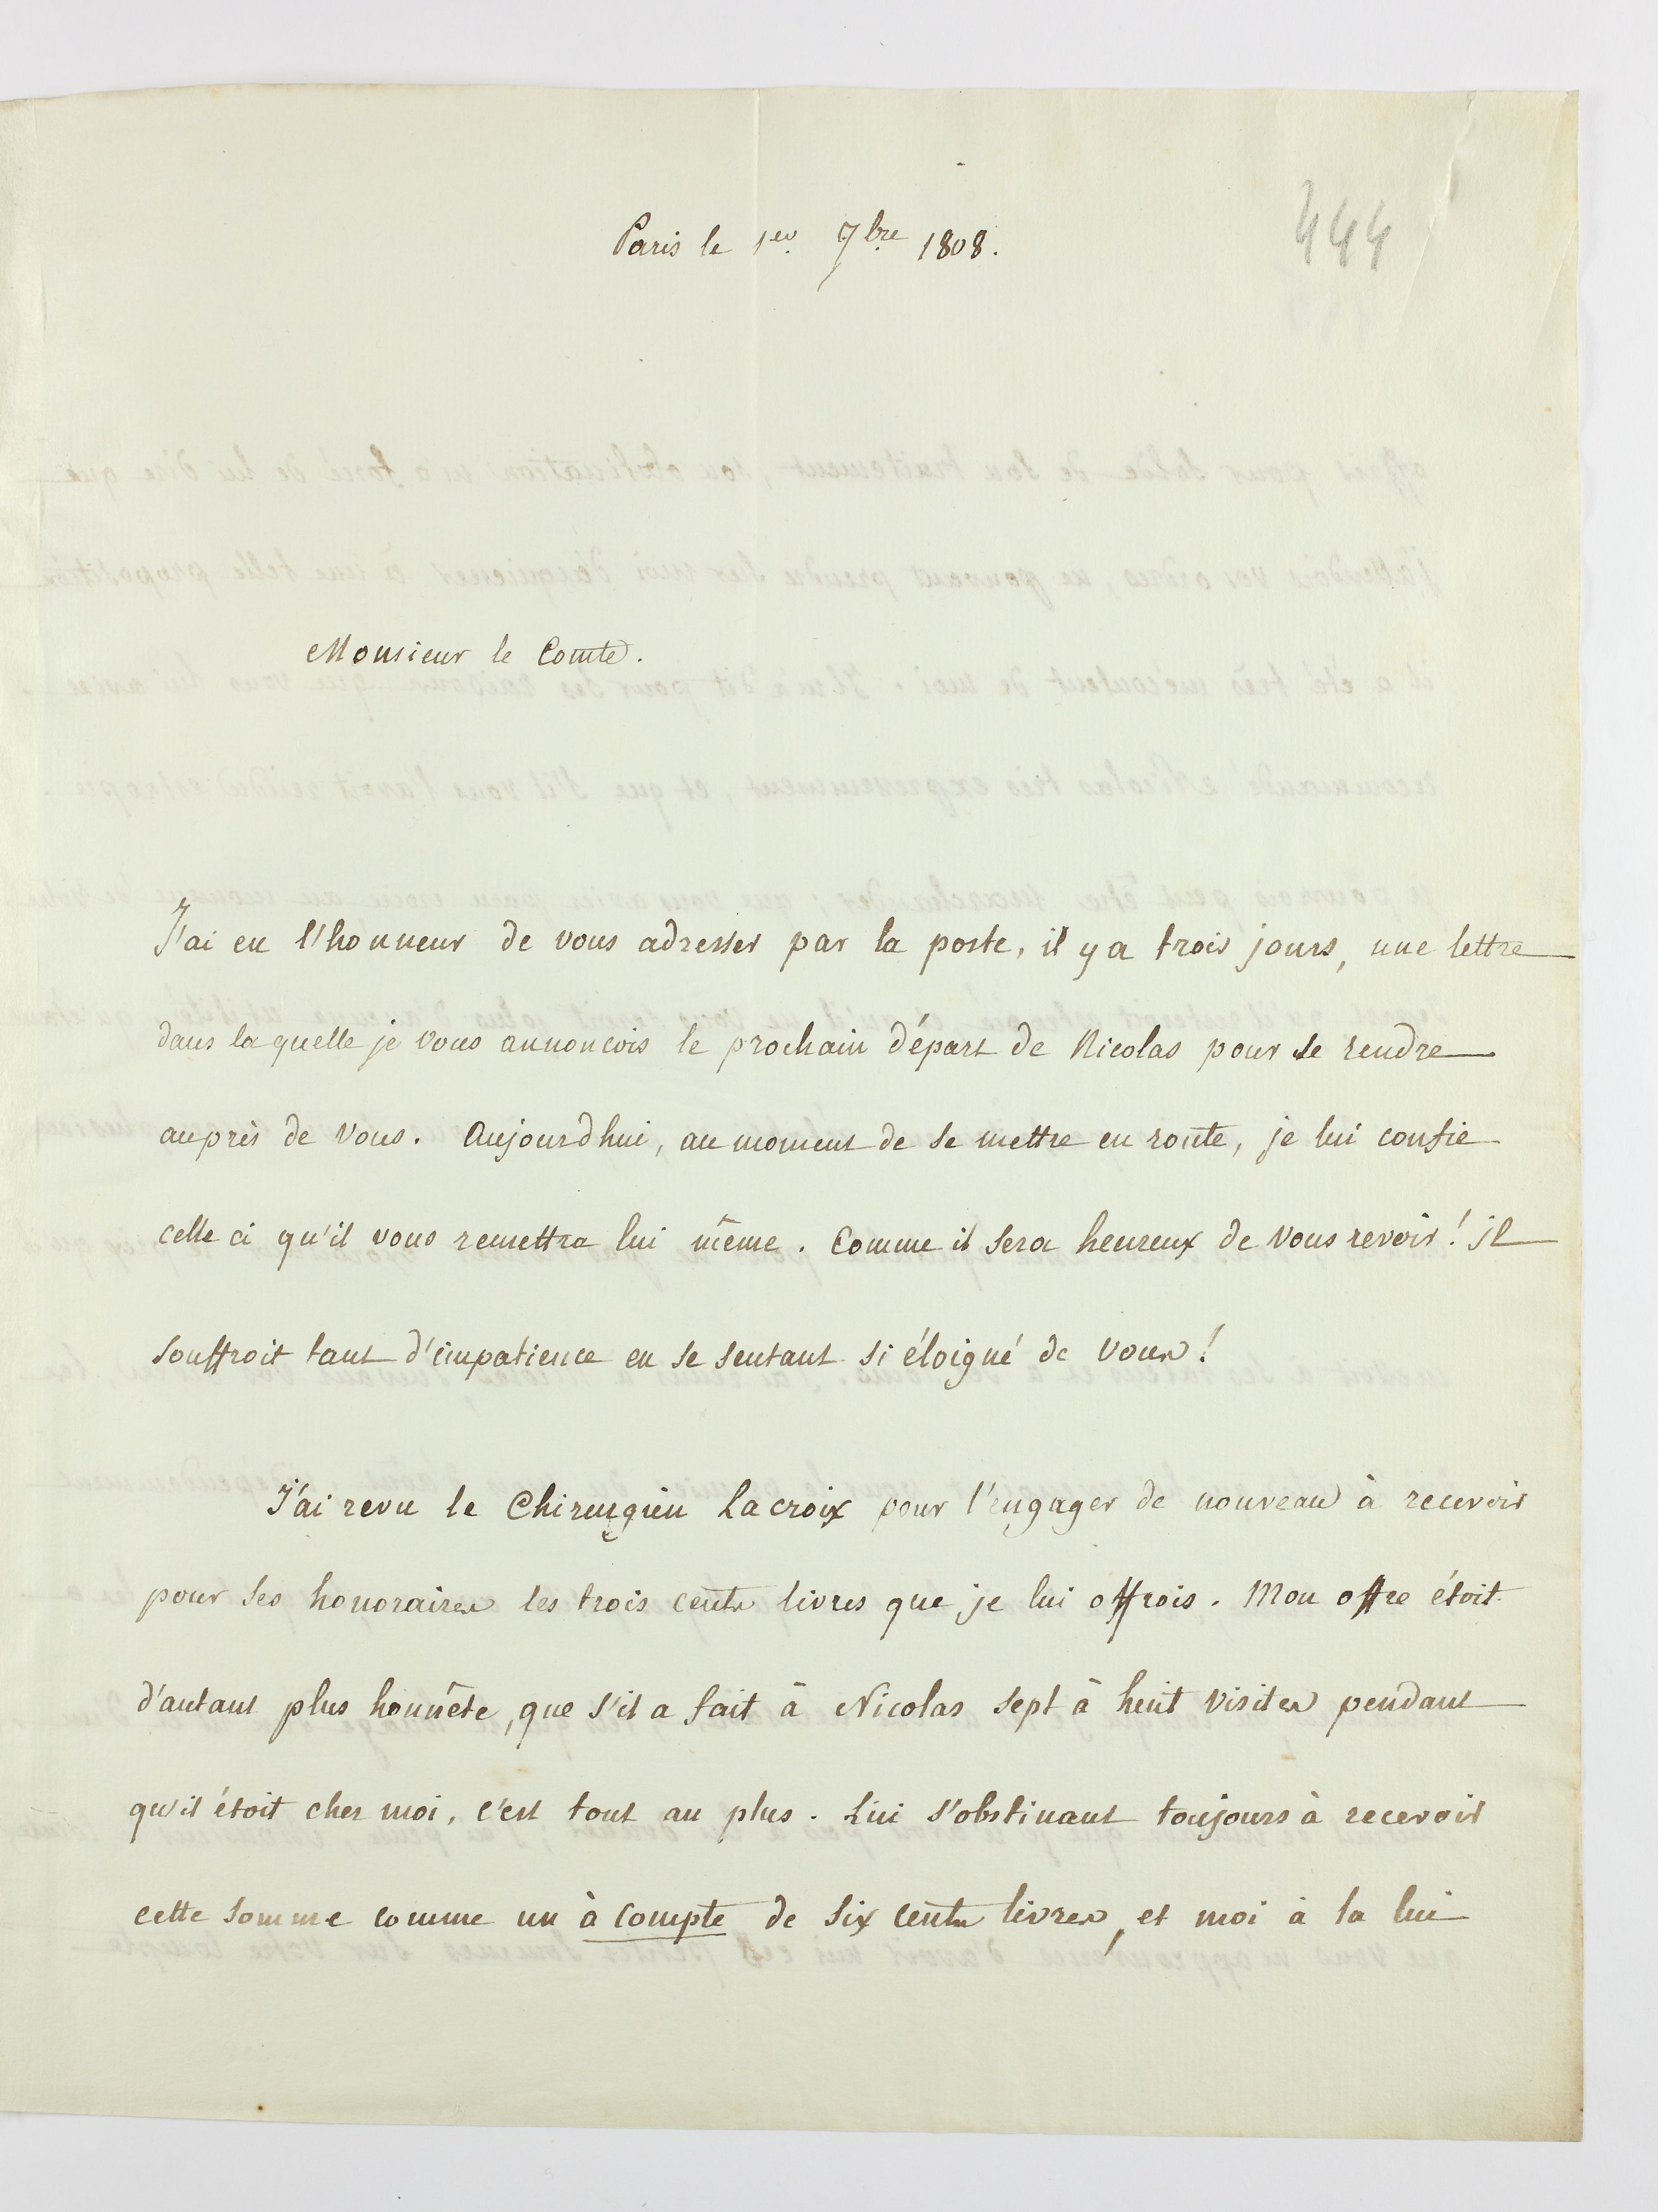 444
Paris le 1er. 7bre 1808.
Monsieur le Comte.
J'ai eu l'honneur de vous adresser par la poste, il y a trois jours, une lettre
dans laquelle je vous annoncois le prochain départ de Nicolas pour se rendre
auprès de vous. Aujourdhui, au moment de se mettre en route, je lui confie
celle ci qu'il vous remettra lui même. Comme il sera heureux de vous revoir! il
souffroit tant d'impatience en se sentant si éloigné de vous!
J'ai revu le Chirurgien Lacroix pour l'engager de nouveau à recevoir
pour ses honoraires les trois cents livres que je lui offrois. Mon offre étoit
d'autant plus honnête, que s'il a fait à Nicolas sept à huit visites pendant
qu'il étoit chez moi, c'est tout au plus. Lui s'obstinant toujours à recevoir
cette somme comme un à compte de six cents livres, et moi à la lui